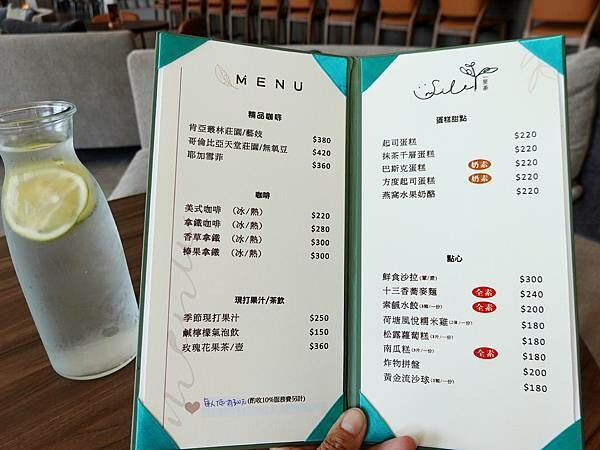 MENU
精品咖啡
肯亞叢林莊園/藝妓 $380
哥倫比亞天堂莊園/無氧豆 $420
耶加雪菲 $360
咖啡
美式咖啡 (冰/熱) $220
拿鐵咖啡 (冰/熱) $280
香草拿鐵 (冰/熱) $300
榛果拿鐵 (冰/熱) $300
現打果汁/茶飲
季節現打果汁 $250
鹹檸檬氣泡飲 $150
玫瑰花果茶/壺 $360
(酌收10%服務費另計)
蛋糕甜點
起司蛋糕 $220
抹茶千層蛋糕 $220
巴斯克蛋糕 奶素 $220
方度起司蛋糕 奶素 $220
燕窩水果奶酪 $220
點心
鮮食沙拉(葷/素) $300
十三香蕎麥麵 全素 $240
素鹹水餃 全素 $200
荷塘風悅糯米雞 $180
松露蘿蔔糕 $180
南瓜糕 全素 $180
炸物拼盤 $200
黃金流沙球 $180